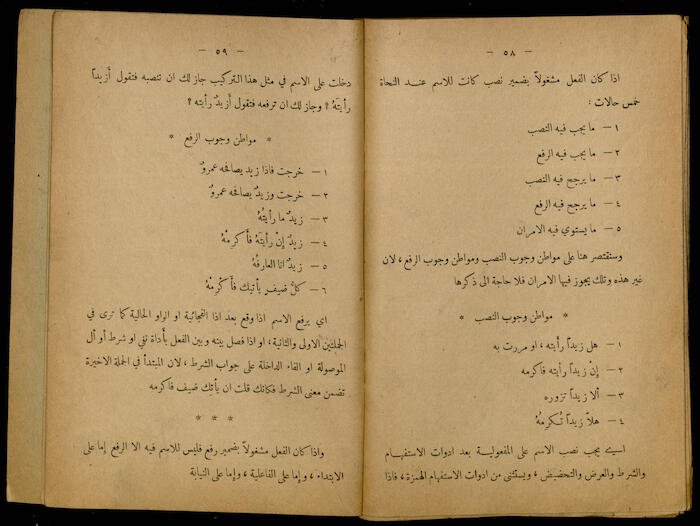 — ٥٨ —
اذا كان الفعل مشغولاً بضمير نصب كانت للاسم عند النحاة
خمس حالات :
١ — ما يجب فيه النصب
٢ — ما يجب فيه الرفع
٣ — ما يرجح فيه النصب
٤ — ما يرجح فيه الرفع
٥ — ما يستوي فيه الامران
وسنقتصر هنا على مواطن وجوب النصب ومواطن وجوب الرفع ، لان
غير هذه وتلك يجوز فيها الامران فلا حاجة الى ذكرها
* مواطن وجوب النصب *
١ — هل زيداً رأيته ، او مررت به
٢ — إنْ زيداً رأيته فاكرمه
٣ — ألا زيداً تزوره
٤ — هلاّ زيداً تُكرمُهُ
اي يجب نصب الاسم على المفعولية بعد ادوات الاستفهام
والشرط والعرض والتحضيض ، ويستثنى من ادوات الاستفهام الهمزة ، فاذا
— ٥٩ —
دخلت على الاسم في مثل هذا التركيب جاز لك ان تنصبه فتقول أَزيداً
رأيتَهُ ؟ وجاز لك ان ترفعه فتقول أَزيدٌ رأيته ؟
* مواطن وجوب الرفع *
١ — خرجت فاذا زيد يصافحه عمروٌ
٢ — خرجت وزيدٌ يصافحه عمروٌ
٣ — زيدٌ ما رأيتُهُ
٤ — زيدٌ إنْ رأيتَهُ فأكرمْهُ
٥ — زيدٌ انا العارفُهُ
٦ — كلُّ ضيفٍ يأتيك فأكْرِمْهُ
اي يرفع الاسم اذا وقع بعد اذا الفجائية او الواو الحالية كما ترى في
الجملتين الاولى والثانية ، او اذا فصل بينه وبين الفعل بأداة نفي او شرط أو أل
الموصولة او الفاء الداخلة على جواب الشرط ، لان المبتدأ في الجملة الاخيرة
تضمن معنى الشرط فكانك قلت ان يأتك ضيف فاكرمه
* * *
واذا كان الفعل مشغولاً بضمير رفع فليس للاسم فيه الا الرفع إما على
الابتداء ، وإما على الفاعلية ، وإما على النيابة